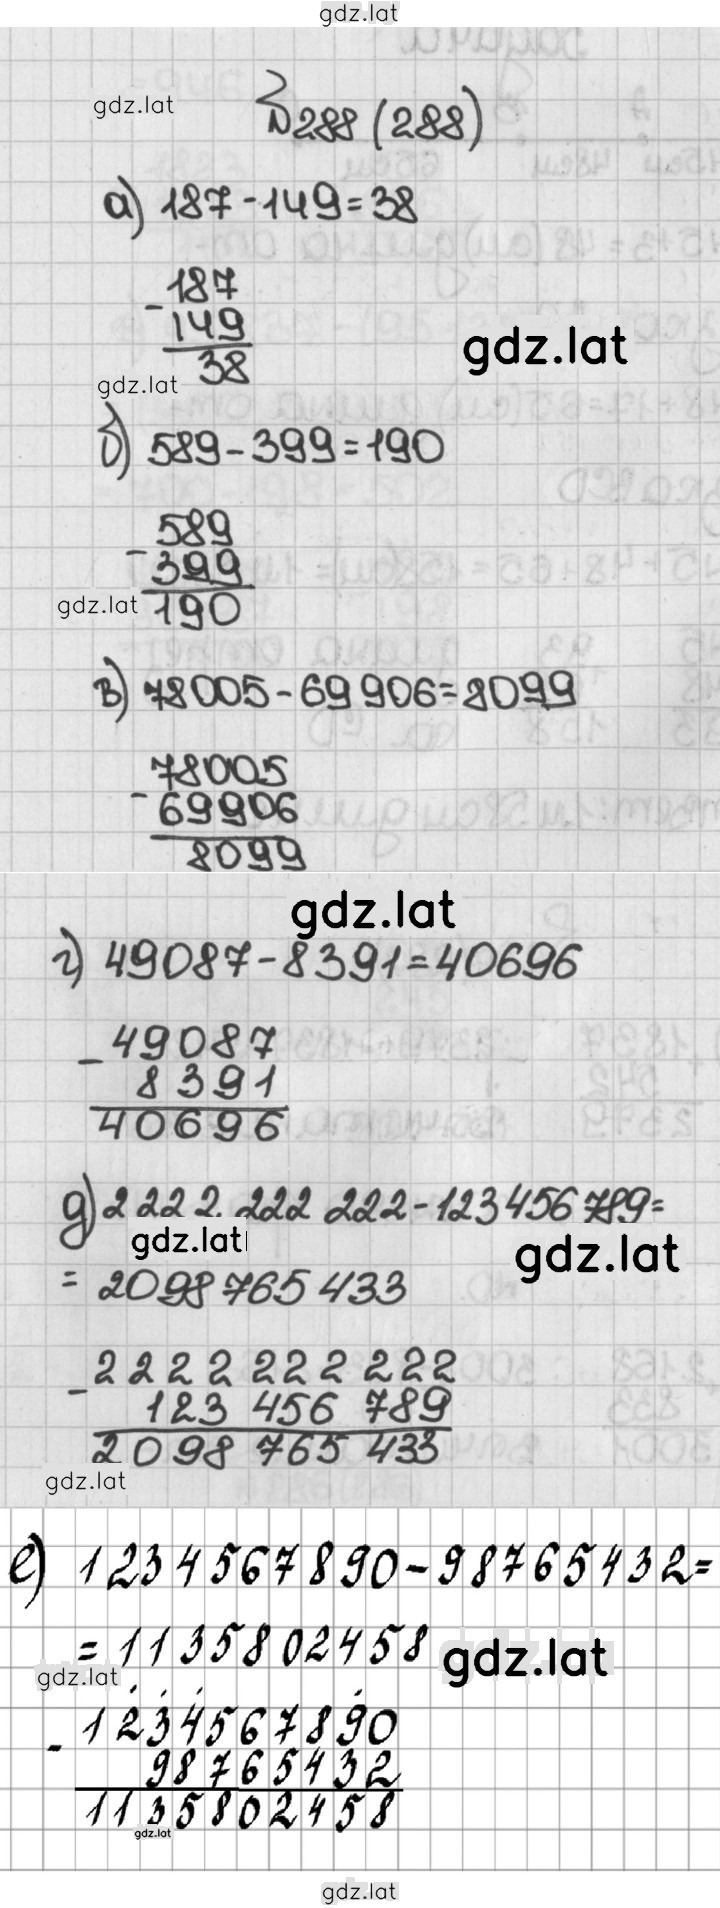 gdz.lat
gdz.lat
№288 (288)
а) 187-149=38
187
- 149
38
gdz.lat
gdz.lat
б) 589-399=190
589
- 399
190
gdz.lat
в) 78005-69906=8099
78005
- 69906
8099
gdz.lat
г) 49087-8391=40696
49087
- 8391
40696
д) 2222 222 222-123456789=
gdz.lat
gdz.lat
= 2098765433
2222 222 222
- 123 456 789
2098 765 433
gdz.lat
е) 1234567890-98765432=
=1135802458
gdz.lat
gdz.lat
1234567890
- 98765432
1135802458
gdz.lat
gdz.lat